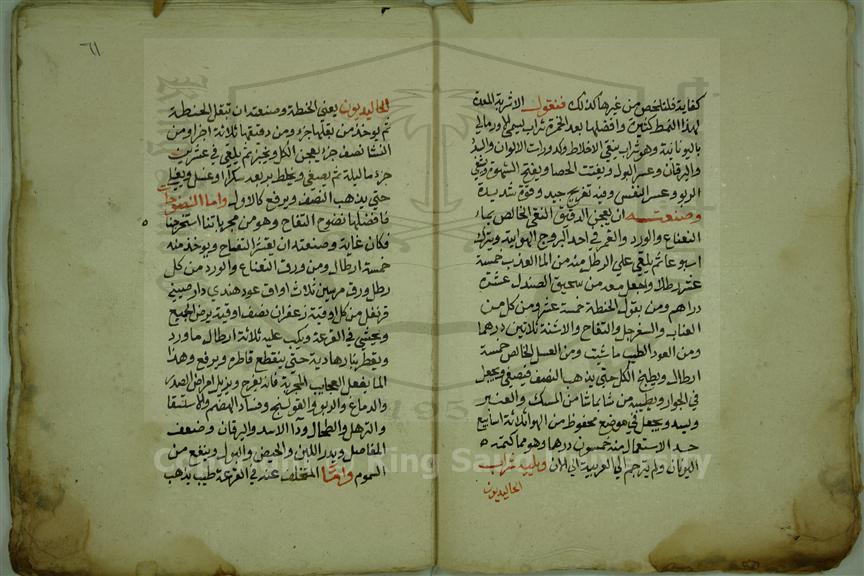 كفاية فلنلخص من غيرها كذلك فنقول الاشربة المعدة
لهذا النمط كثيرة وافضلها بعد الخمرة شراب يسمى
باليونانية وهو شراب ينقي الاخلاط وكدورات الالوان
واليرقان وعسر البول ويفتت الحصا ويفتح الشهوة وينقي
الربو وعسر النفس وفيه تفريح جيد وقوة شديدة
وصنعته ان يعجن الدقيق النقي الخالص بماء
النعناع والورد والخمر في احد البروج الهوايية ويترك
اسبوعا ثم يلقى على الرطل منه من الماء العذب خمسة
عشر رطلا ويجعل معه من سحيق الصندل عشرة
دراهم ومن بقول الحنطة خمسة عشر ومن كل من
العناب والسفرجل والتفاح والاشنة ثلاثين درهما
ومن العود الطيب ما شئت ومن العسل الخالص خمسة
ارطال ويطبخ الكل حتى يذهب النصف فيصفى ويجعل
في الجرار ويطيب من شاء بما شاء من المسك والعنبر
ويسد ويجعل في موضع محفوظ من الهوا ثلاثة اسابيع
حد الاستعمال منه خمسون درهما وهو مما كتمه
اليونان ولم يترجم الى العربية الى الان ويليه شراب
الحاليديون
٦١
الحاليديون يعني الحنطة وصنعته ان تبقل الحنطة
ثم يوخذ من بقلها جزء ومن دقيقها ثلاثة اجزا ومن
النشا نصف جزء يعجن الكل ويخبز ثم يلقى في عشرين
جزء ما ليلة ثم يصفى ويخلط بربعه سكرا او عسل ويغلى
حتى يذهب النصف ويرفع كالاول واما النضوحات
فافضلها نضوح التفاح وهو من مجرباتنا استخرجناه
فكان غاية وصنعته ان يقشر التفاح ويوخذ منه
خمسة ارطال ومن ورق النعناع والورد من كل
رطل ورق مرسين ثلاث اواق عود هندي دارصيني
قرنفل من كل اوقية زعفران نصف اوقية يرض الجميع
ويحشى في القرعة ويكب عليه ثلاثة ارطال ماورد
ويقطر بنار هادية حتى ينقطع قاطره ويرفع وهذا
الما يفعل العجايب المجربة فانه يفرح ويزيل امراض الصدر
والدماغ والربو والقولنج وفساد الهضم والاستسقا
والترهل والطحال وداء الاسد واليرقان وضعف
المفاصل ويدر اللبن والحيض والبول وينفع من
السموم واما المتخلف عنه في القرعة طيب يذهب
Copyright © King Saud University
1957